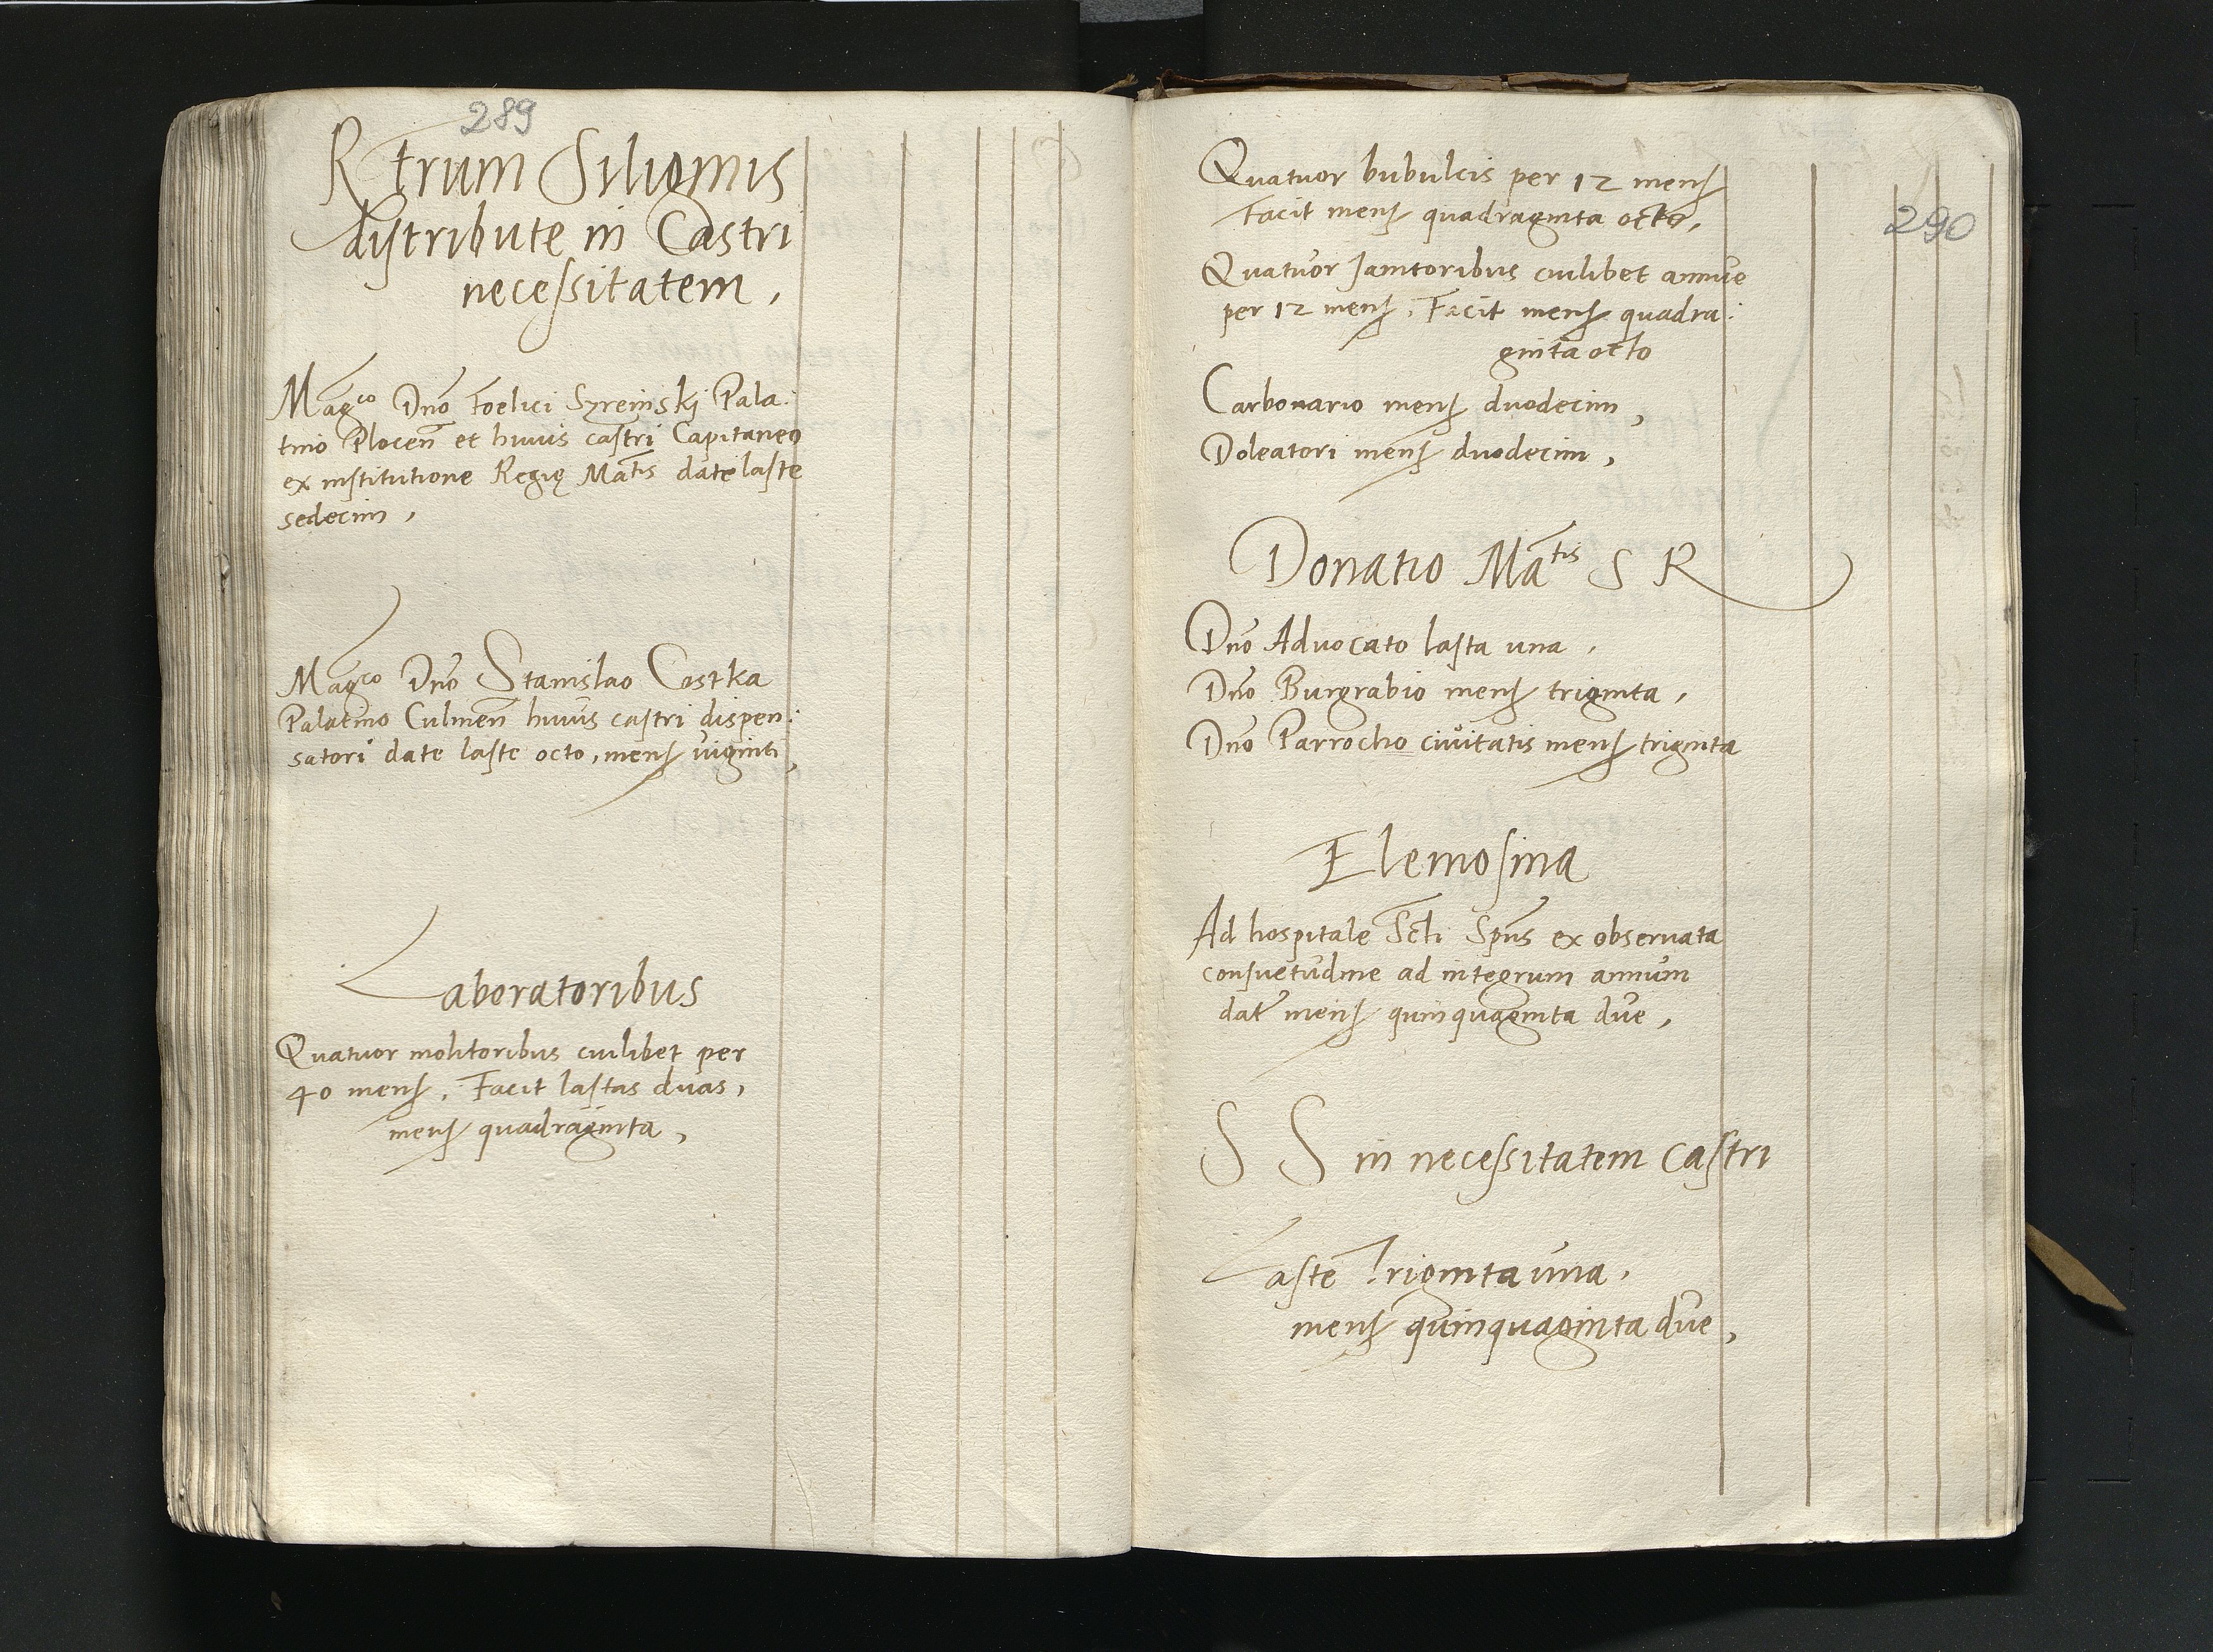 289
Rtrum Siliginis
distribute in Castri
necessitatem,
Magco Dno Foelici Szreinskj Pala:
tino Plocen et huius castri Capitaneo
ex institutione Regię Matis date laste
sedecim,
Magco Dno Stanislao Costka
Palatino Culmen huius castri dispen:
satori date laste octo, mens viginti,
Laboratoribus
Quatuor molitoribus cuilibet per
40 mens, Facit lastas duas,
mens quadraginta,
290
Quatuor bubulcis per 12 mens
Facit mens quadraginta octo,
Quatuor Janitoribus cuilibet annue
per 12 mens, Facit mens quadra:
ginta octo
Carbonario mens duodecim,
Doleatori mens duodecim,
Donatio Matis S R
Dno Advocato lasta una,
Dno Burgrabio mens triginta,
Dno Parrocho civitatis mens triginta
Elemosina
Ad hospitale Scti Spus ex observata
consuetudine ad integrum annum
dat mens quinquaginta due,
S S in necessitatem castri
Laste Triginta una,
mens quinquaginta due,